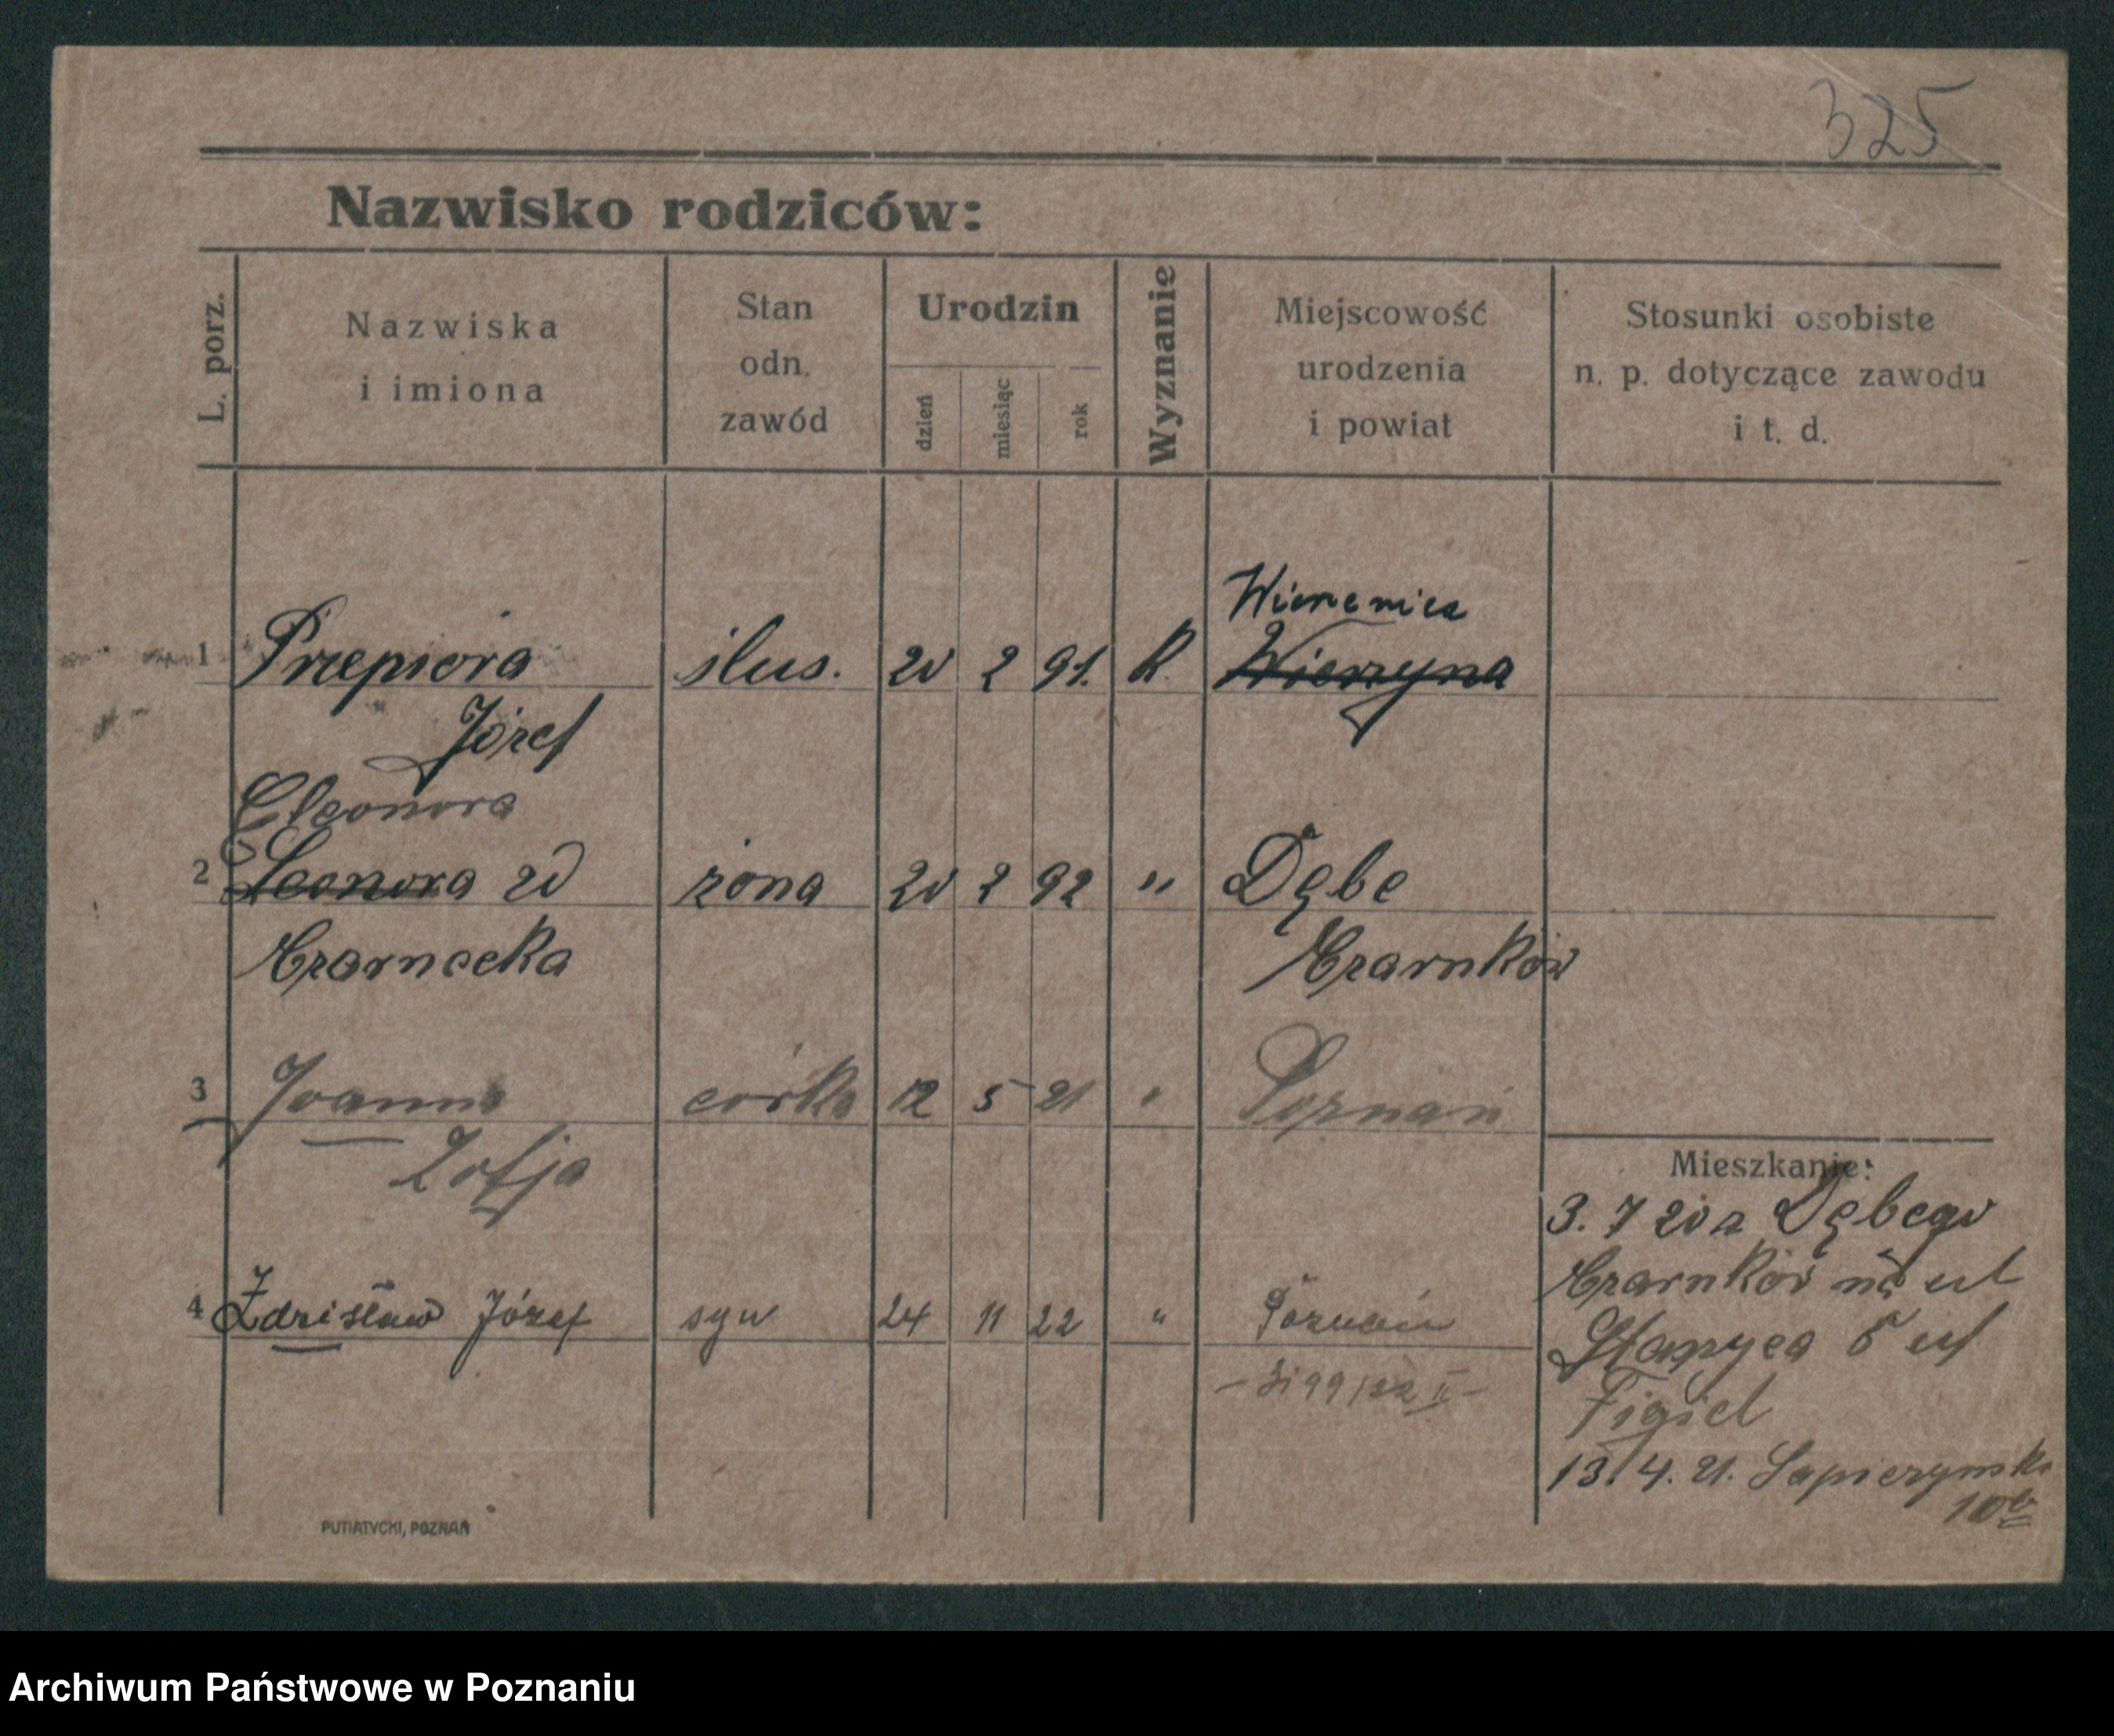 325
Nazwisko rodziców:
L. porz.
Nazwiska
i imiona
Stan
odn.
zawód
Urodzin
dzień
miesiąc
rok
Wyznanie
Miejscowość
urodzenia
i powiat
Stosunki osobiste
n. p. dotyczące zawodu
i t. d.
1 Przepiora ślus. 20 2 91. K. Wierzyna
Józef
Eleonora
2 Leonora zd żona 20 2 92 " Dębe
Czarnecka Czarnków
3 Joanna córka 12 5 21 " Poznań
Zofja
Mieszkanie:
3. 7 20 z Dębego
Czarnków na ul
4 Zdzisław Józef syn 24 11 22 " Poznań
6 ul
Figiel
13. 4. 21. Sapierzynska
10b
PUTIATYCKI, POZNAŃ
Archiwum Państwowe w Poznaniu